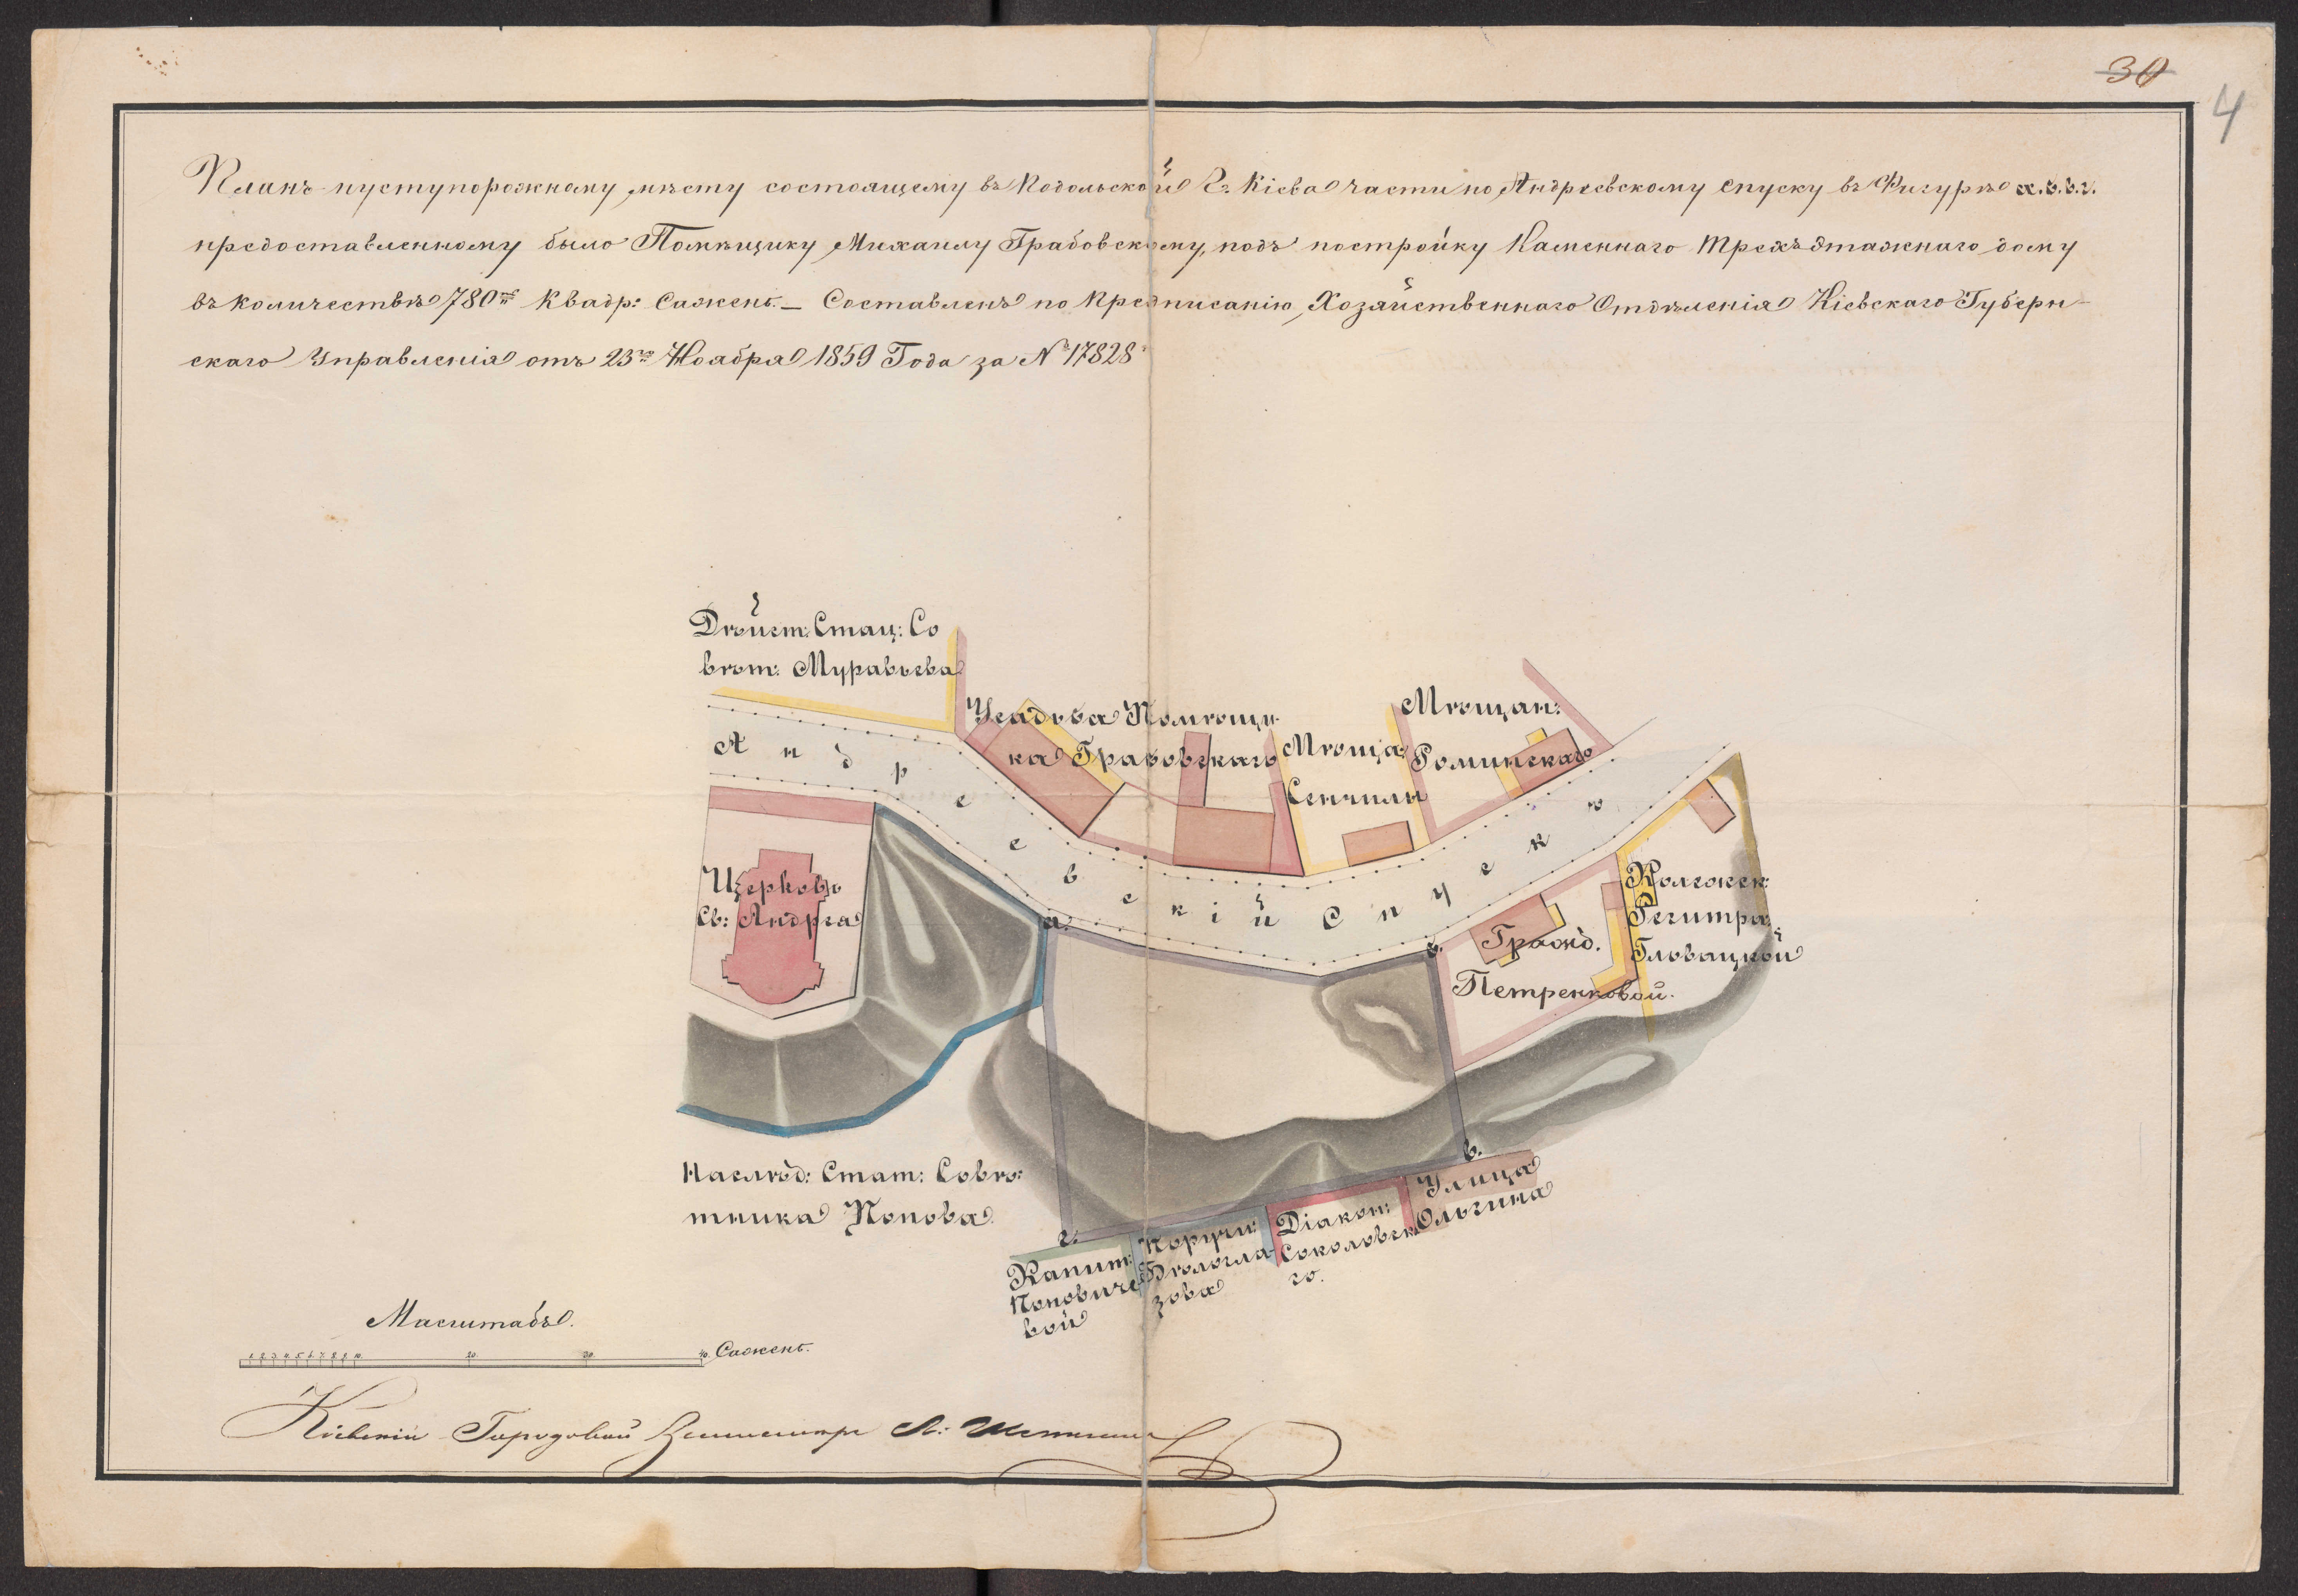 30
4
Планъ пуступорожному мѣсту состоящему въ Подольской Г. Кіева части по Андреевскому спуску въ Фигурѣ а.б.в.г.
предоставленному было Помѣщику Михаилу Грабовскому, подъ постройку Каменнаго трехъэтажнаго дому
въ количествѣ 780ти Квадр: Сажень. — Составленъ по предписанію Хозяйственнаго Отдѣленія Кіевскаго Губерн-
скаго Управленія отъ 23го Ноабра 1859 Года за № 17828
Дѣйст: Стац: Со
вѣт: Муравьева
Усадьба Помѣщи-
ка Грабовскаго
Мѣща:
Сенчилы
Мѣщан:
Роминскаго
Андреевскій Спускъ
Церковь
Св: Андреа
а.
б.
Гражд.
Петренковой.
Колежск:
Регитра:
Гловацкой
Наслѣд: Стат: Совѣ:
тника Попова.
в.
г.
Улица
Ольгина
Діакон:
Соколовска
го.
Поручи:
Бѣлогла-
зова
Капит:
Поповиче
вой
Масштабъ.
1 2 3 4 5 6 7 8 9 10. 20. 30. 40. Сажень.
Кіевскій Городовой Землемѣръ А: